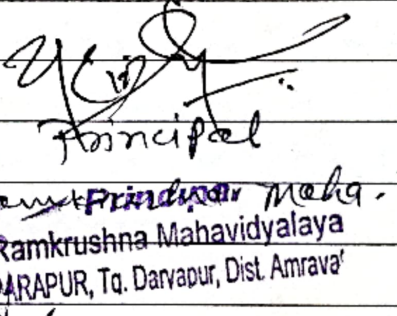 Principal
Principal Maha.
Ramkrushna Mahavidyalaya
DARAPUR, Tq. Daryapur, Dist. Amrava